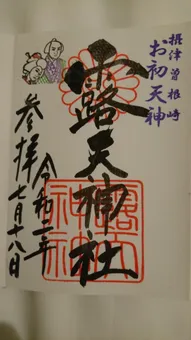 摂津 曽根崎
お初天神
露天神社
令和二年
七月十八日
参拝